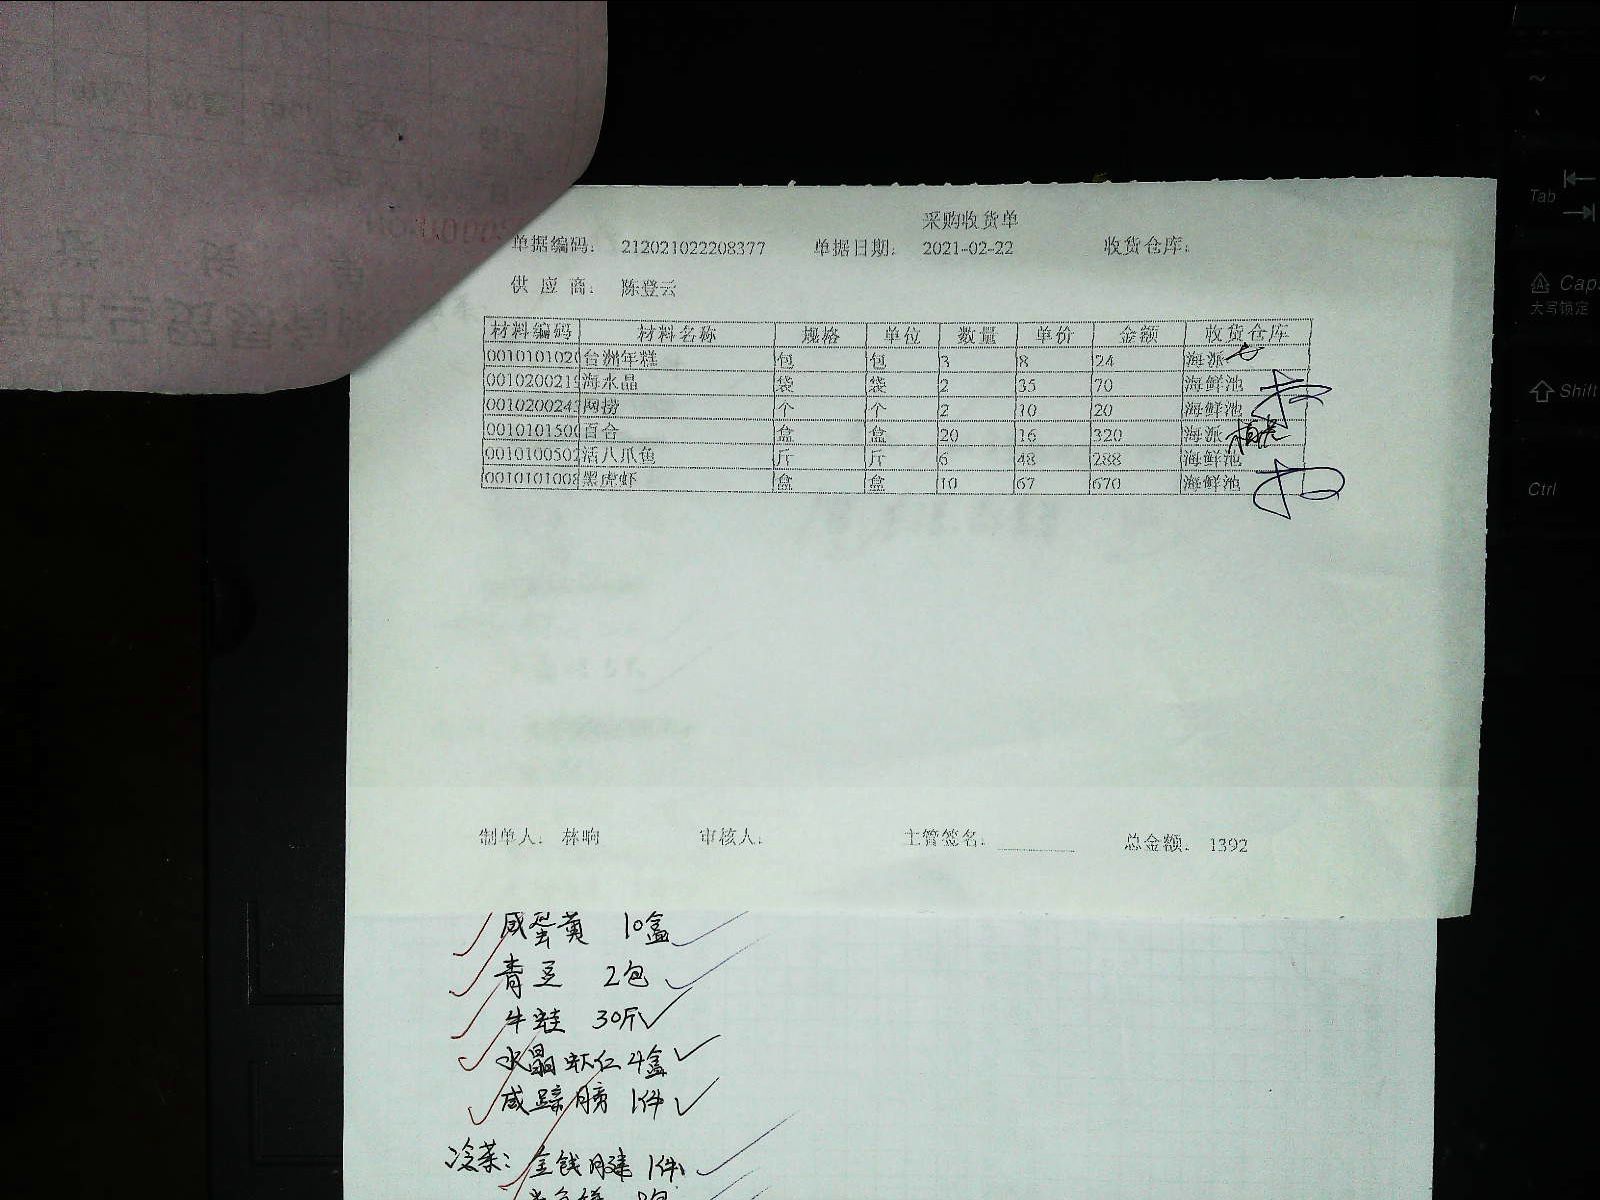 采购收货单
单据编码: 212021022208377 单据日期: 2021-02-22 收货仓库:
供应商: 陈登云
材料编码 材料名称 规格 单位 数量 单价 金额 收货仓库
0010101020 台洲年糕 包 包 3 8 24 海派
001020021 海水晶 袋 袋 2 35 70 海鲜池
001020024 网捞 个 个 2 10 20 海鲜池
001010150 百合 盒 盒 20 16 320 海派
001010050 活八爪鱼 斤 斤 6 48 288 海鲜池
001010100 黑虎虾 盒 盒 10 67 670 海鲜池
制单人: 林响 审核人: 主管签名: 总金额: 1392
咸蛋黄 10盒
青豆 2包
牛蛙 30斤
水晶虾仁 4盒
咸蹄膀 1件
冷菜: 金钱腱 1件
Tab
Caps
大写锁定
Shift
Ctrl